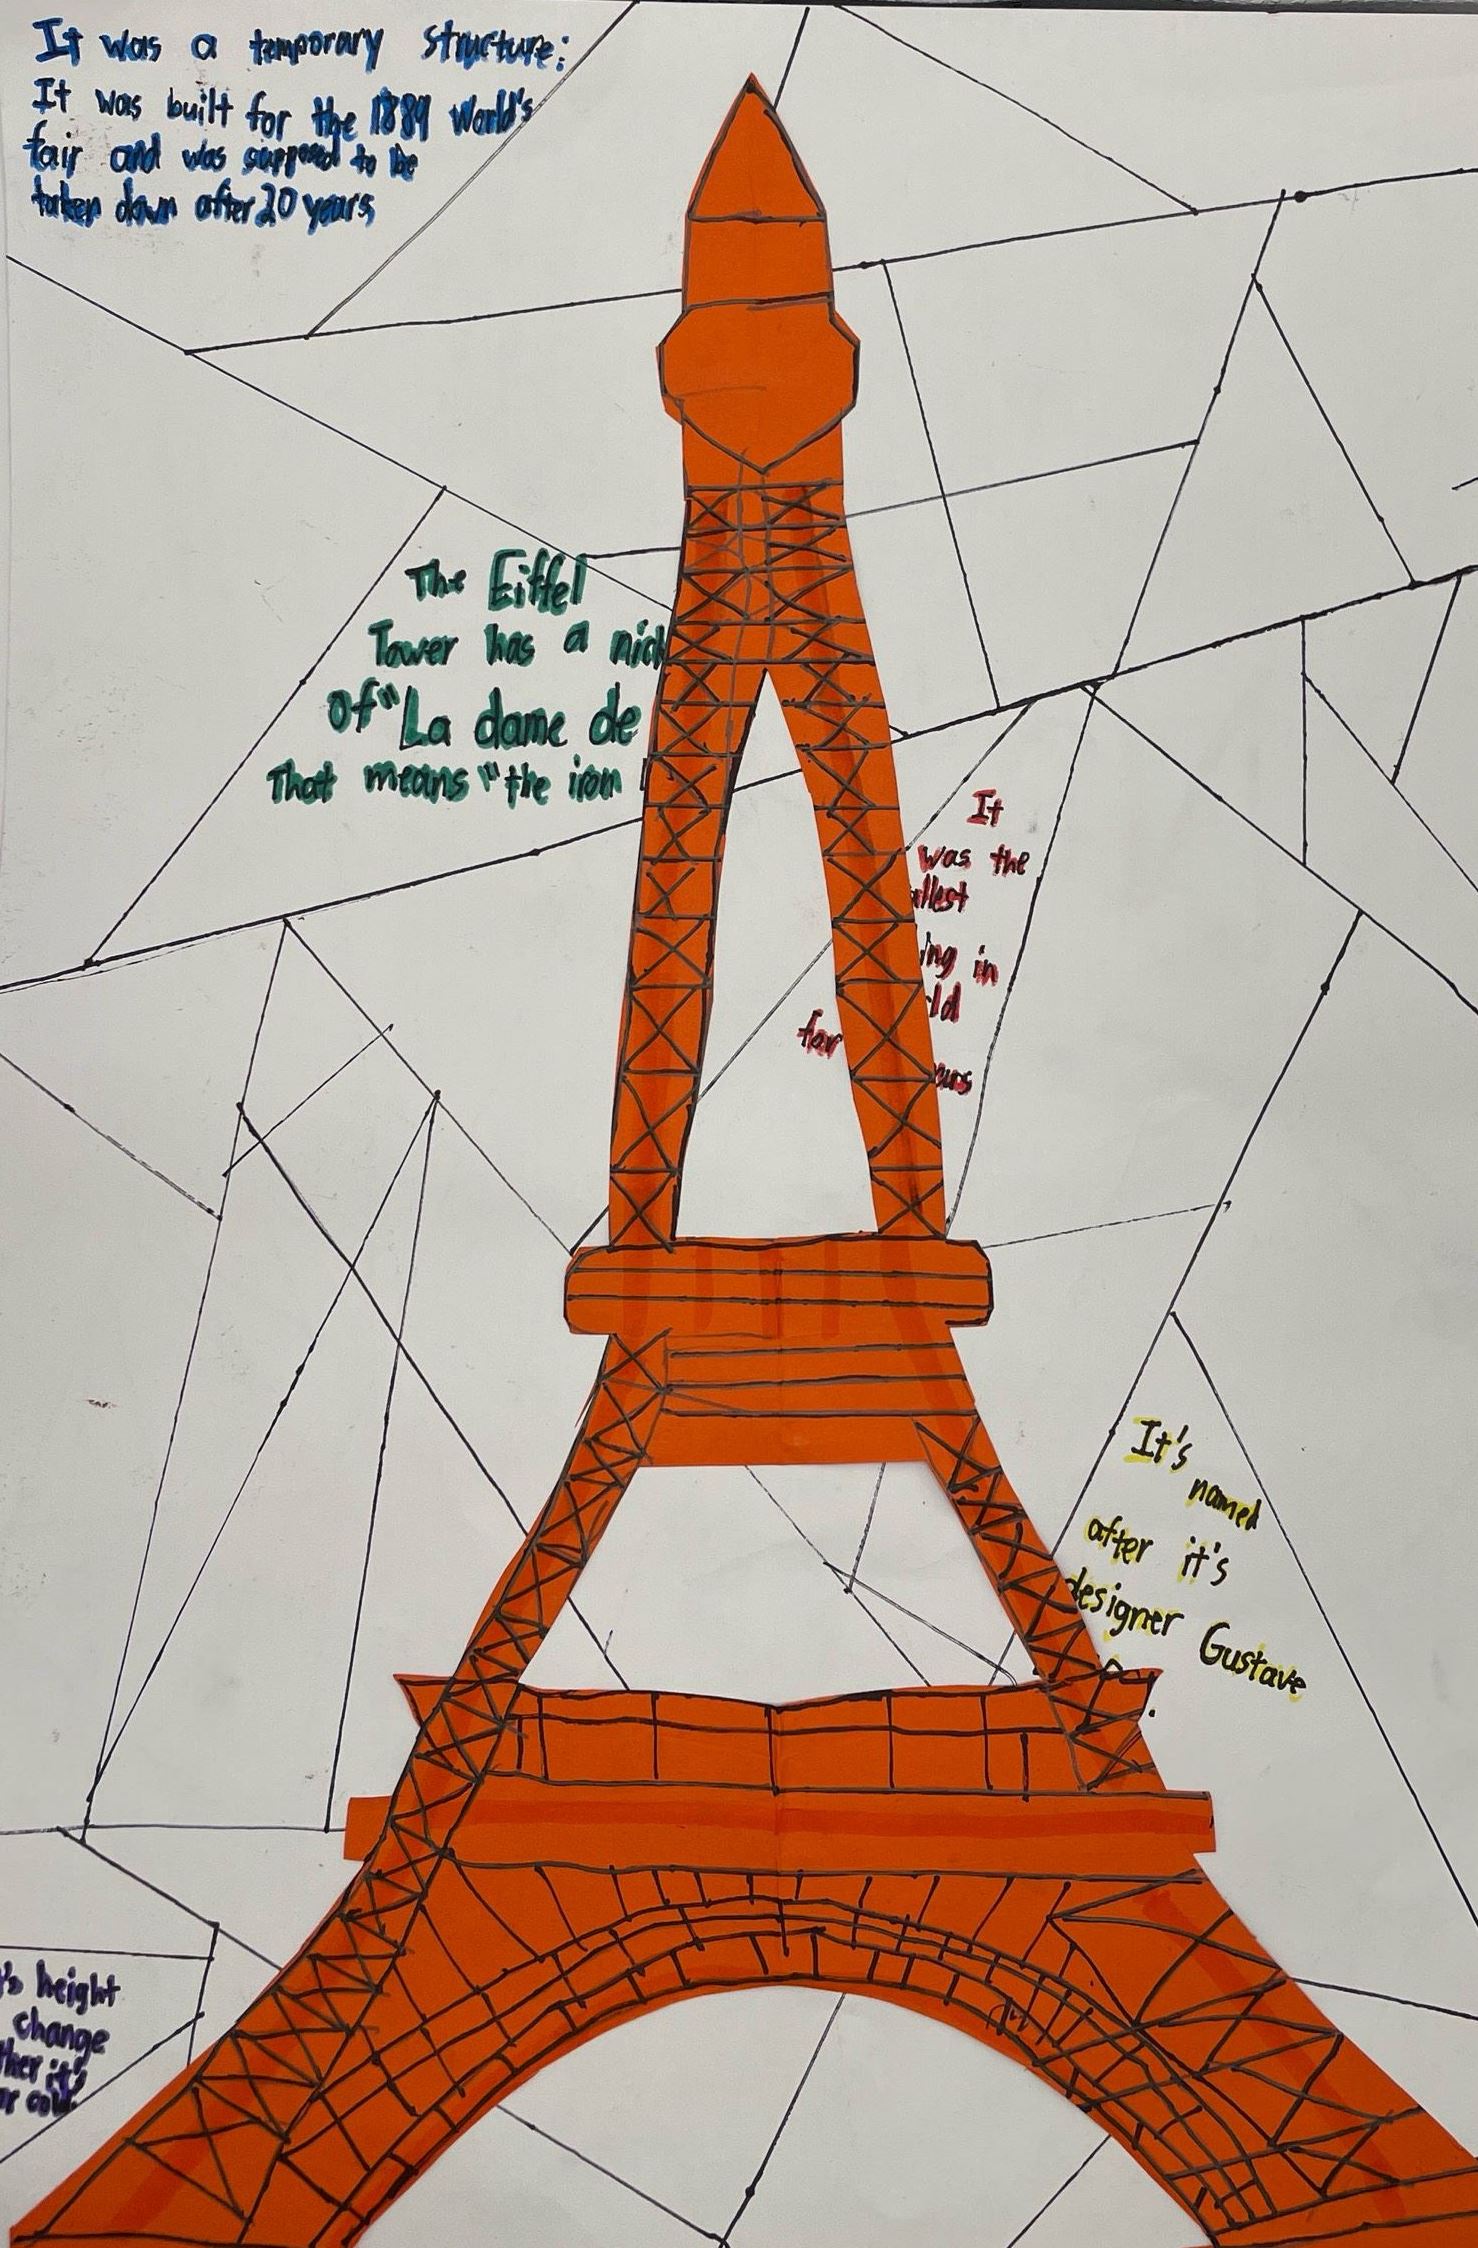 It was a temporary structure:
It was built for the 1889 World's
fair and was supposed to be
taken down after 20 years
The Eiffel
Tower has a nick
Of "La dame de
That means "the iron
It
was the
allest
ing in
ld
for
ears
It's
named
after it's
designer Gustave
's height
change
ther it's
or cold.